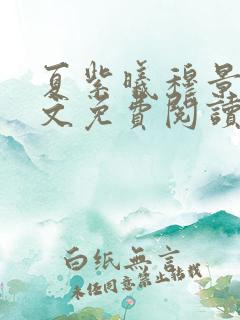 夏紫曦穆景
文免費閱讀
白纸無言
未经同意禁止转载